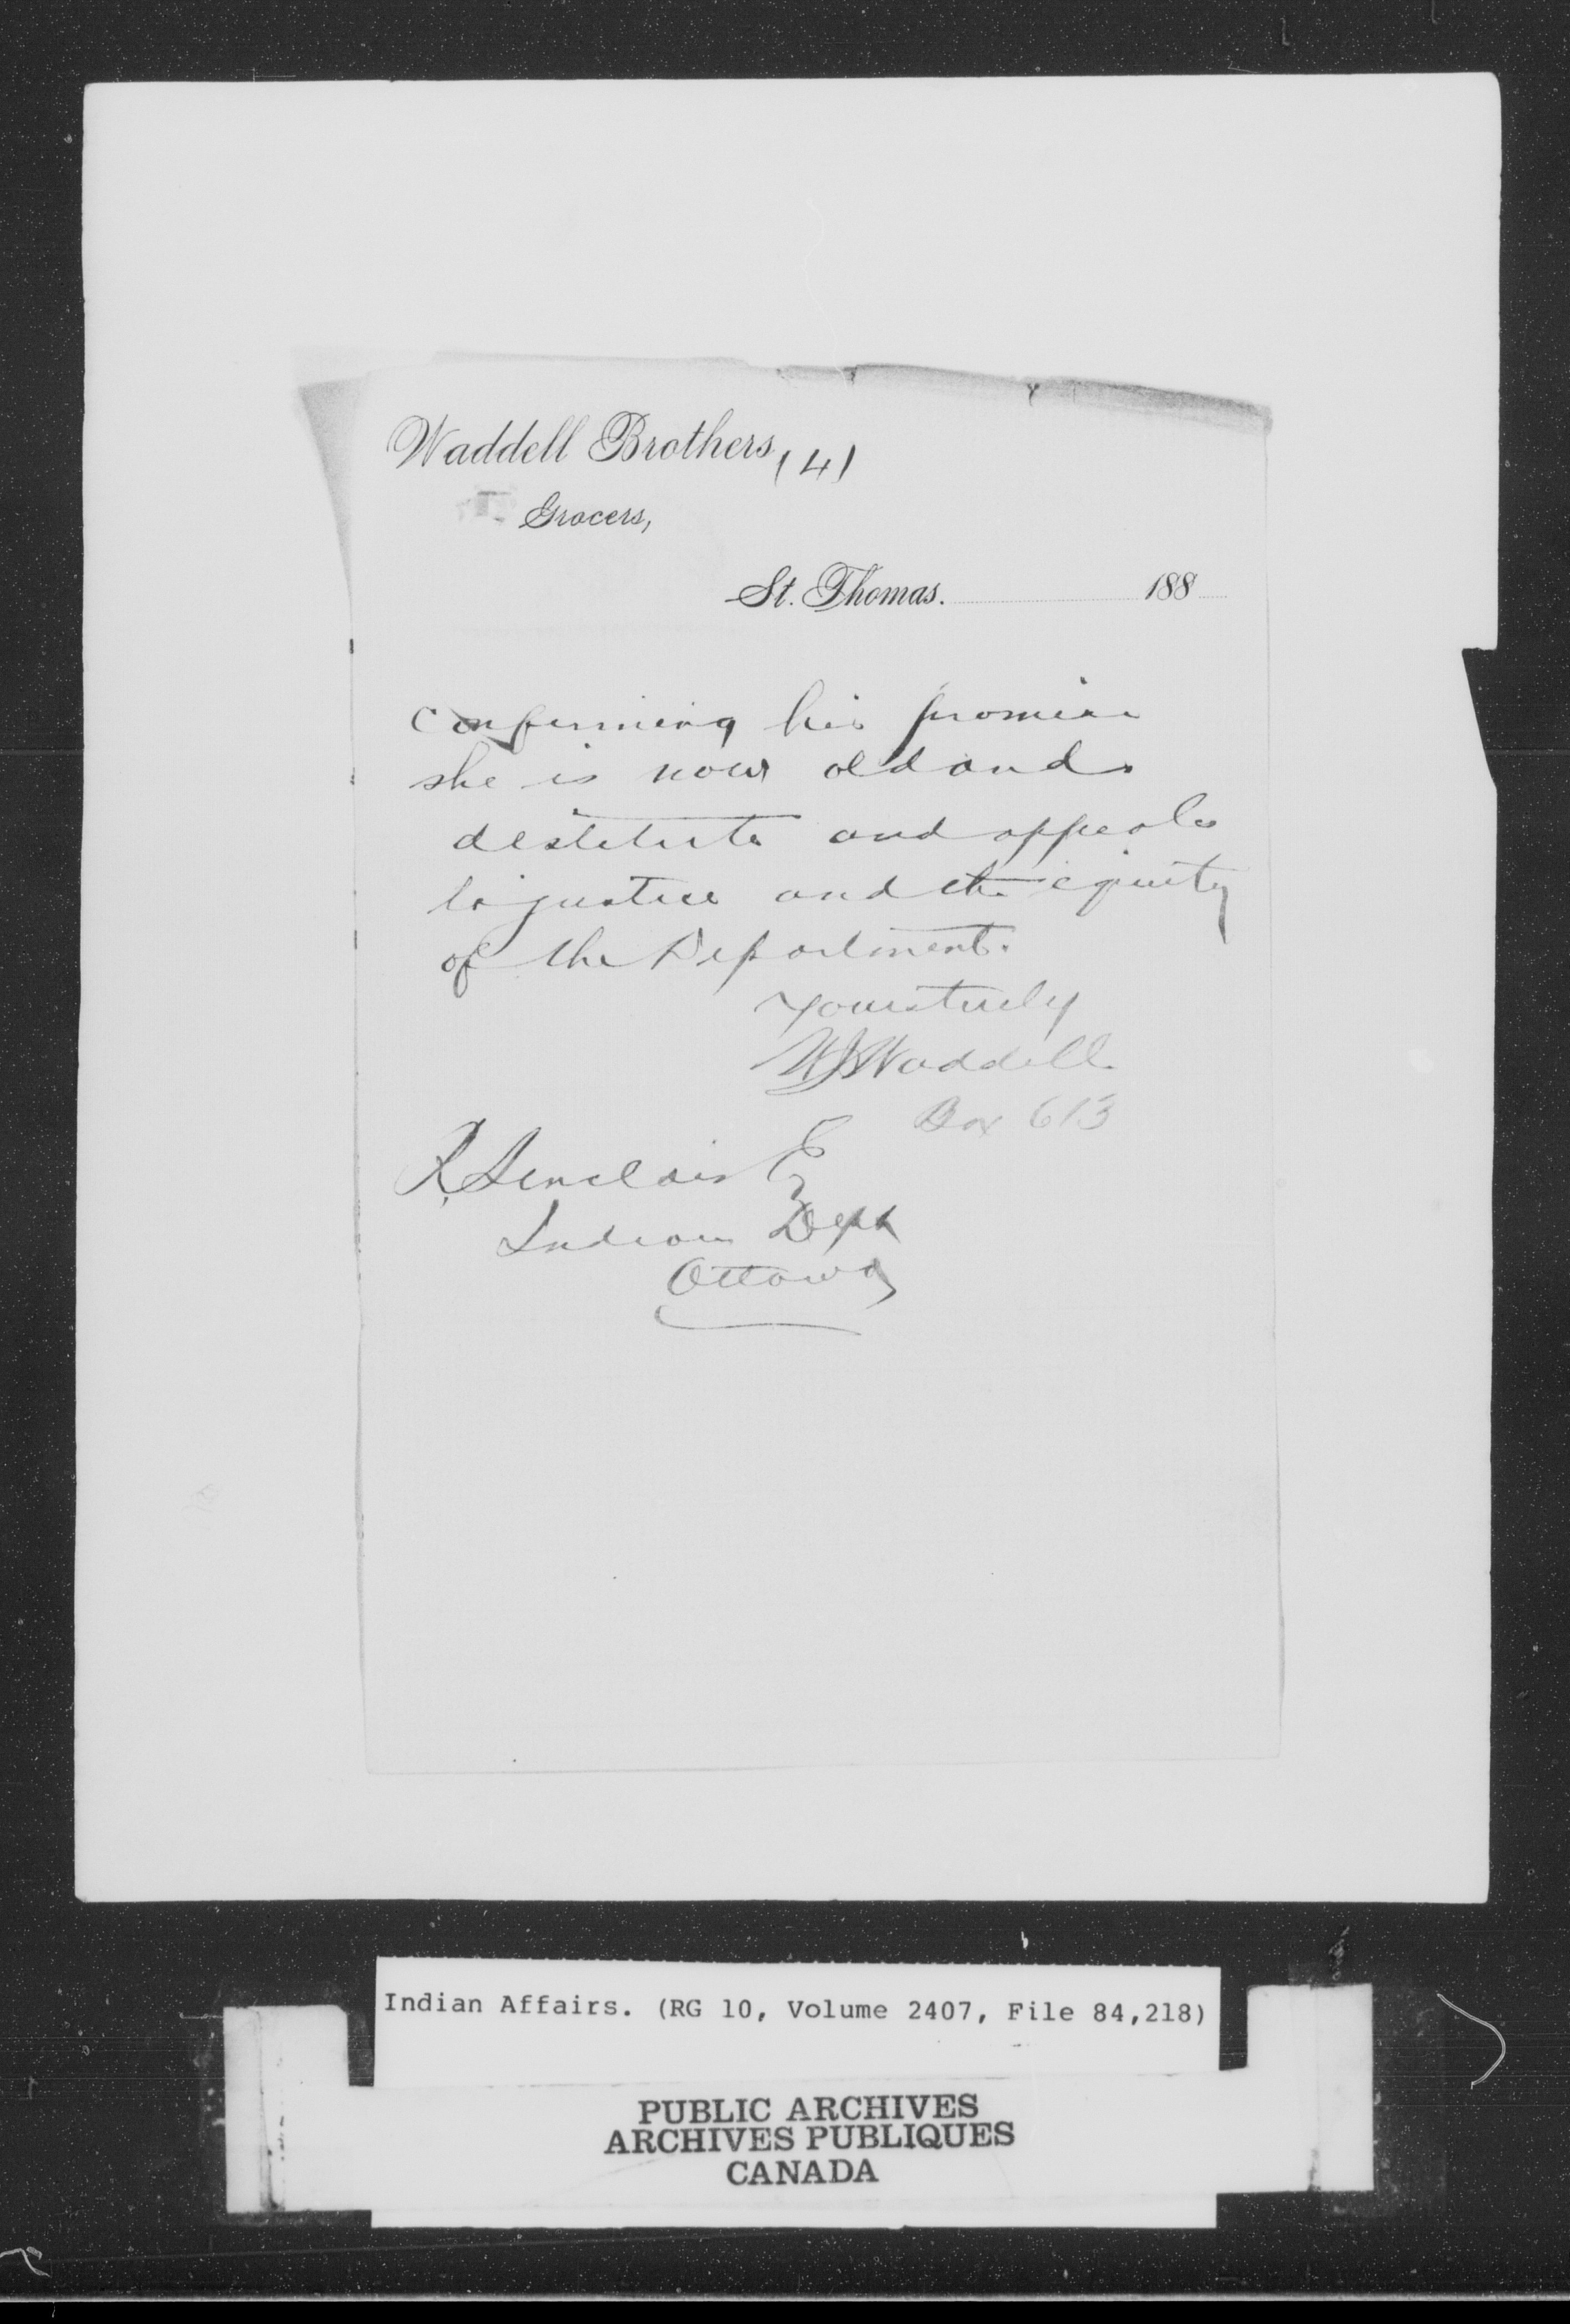 Waddell Brothers, (4)
Grocers,
St. Thomas. 188
confirming his promise
she is now old and
destitute and appeals
to justice and the equity
of the Department.
Yours truly
WJ Waddell
Box 613
R. Sinclair Eq
Indian Dept
Ottawa
Indian Affairs. (RG 10, Volume 2407, File 84,218)
PUBLIC ARCHIVES
ARCHIVES PUBLIQUES
CANADA